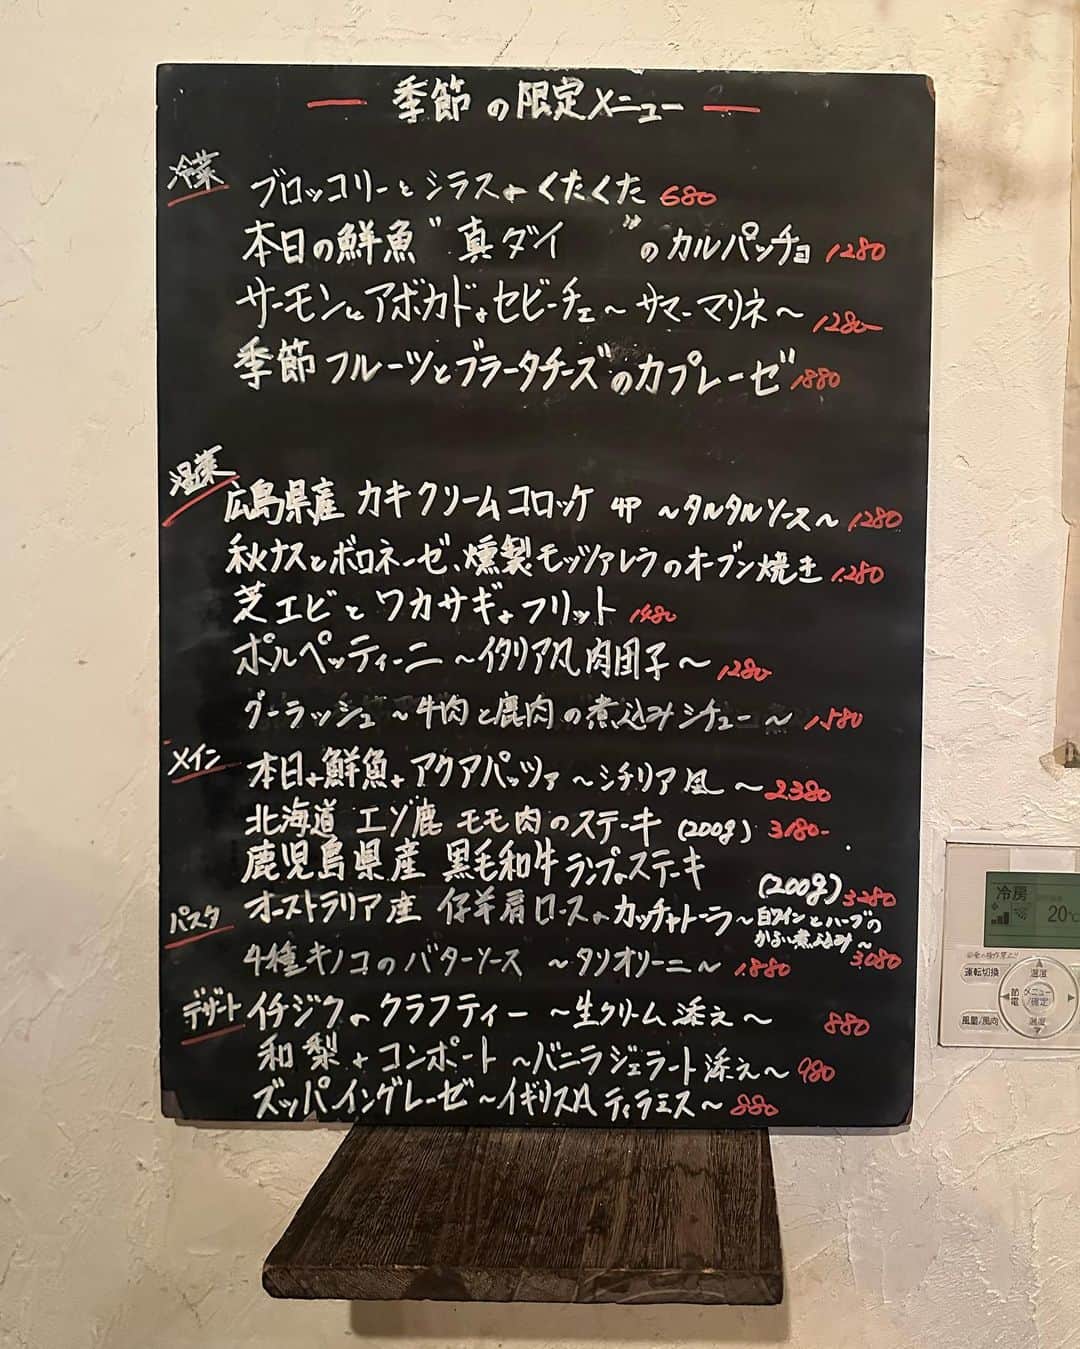 季節の限定メニュー
冷菜
ブロッコリーとシラスのくたくた 680
本日の鮮魚"真ダイ"のカルパッチョ 1280
サーモンとアボカドのセビーチェ〜サマーマリネ〜 1280-
季節フルーツとブラータチーズのカプレーゼ 1880
温菜
広島県産 カキクリームコロッケ 4P 〜タルタルソース〜 1,280
秋ナスとボロネーゼ、燻製モッツァレラのオーブン焼き 1,280
芝エビとワカサギのフリット 1480
ポルペッティーニ〜イタリア風肉団子〜 1280-
グーラッシュ〜牛肉と鹿肉の煮込みシチュー〜 1,580
メイン
本日の鮮魚のアクアパッツァ〜シチリア風〜 2380
北海道 エゾ鹿 モモ肉のステーキ (200g) 3180-
鹿児島県産 黒毛和牛ランプのステーキ (200g) 3280
オーストラリア産 仔羊肩ロースのカッチャトーラ〜白ワインとハーブの
かるい煮込み〜 3080
パスタ
4種キノコのバターソース 〜タリオリーニ〜 1,880
デザート
イチジクのクラフティー 〜生クリーム添え〜 880
和梨のコンポート〜バニラジェラート添え〜 980
ズッパイングレーゼ〜イギリス風ティラミス〜 880
冷房
20℃
運転切換
温度
節電
メニュー/確定
風量/風向
温度